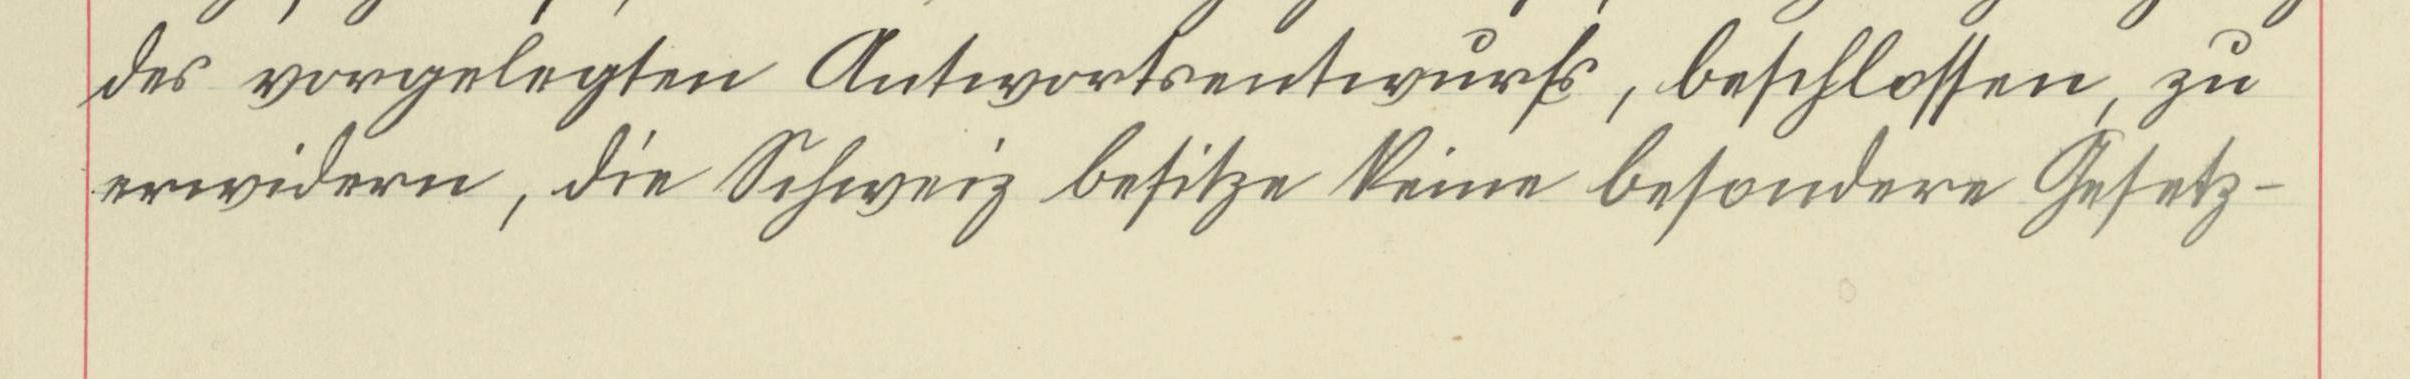 des vorgelegten Antwortsentwurfs, beschlossen, zu
erwidern, die Schweiz besitze keine besondere Gesetz-